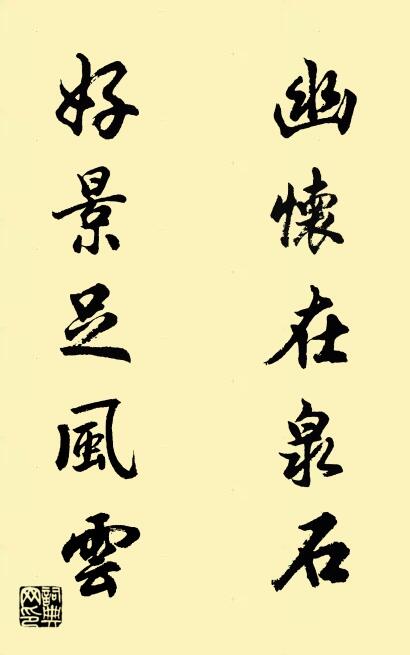 幽懷在泉石
好景足風雲
詞典網印